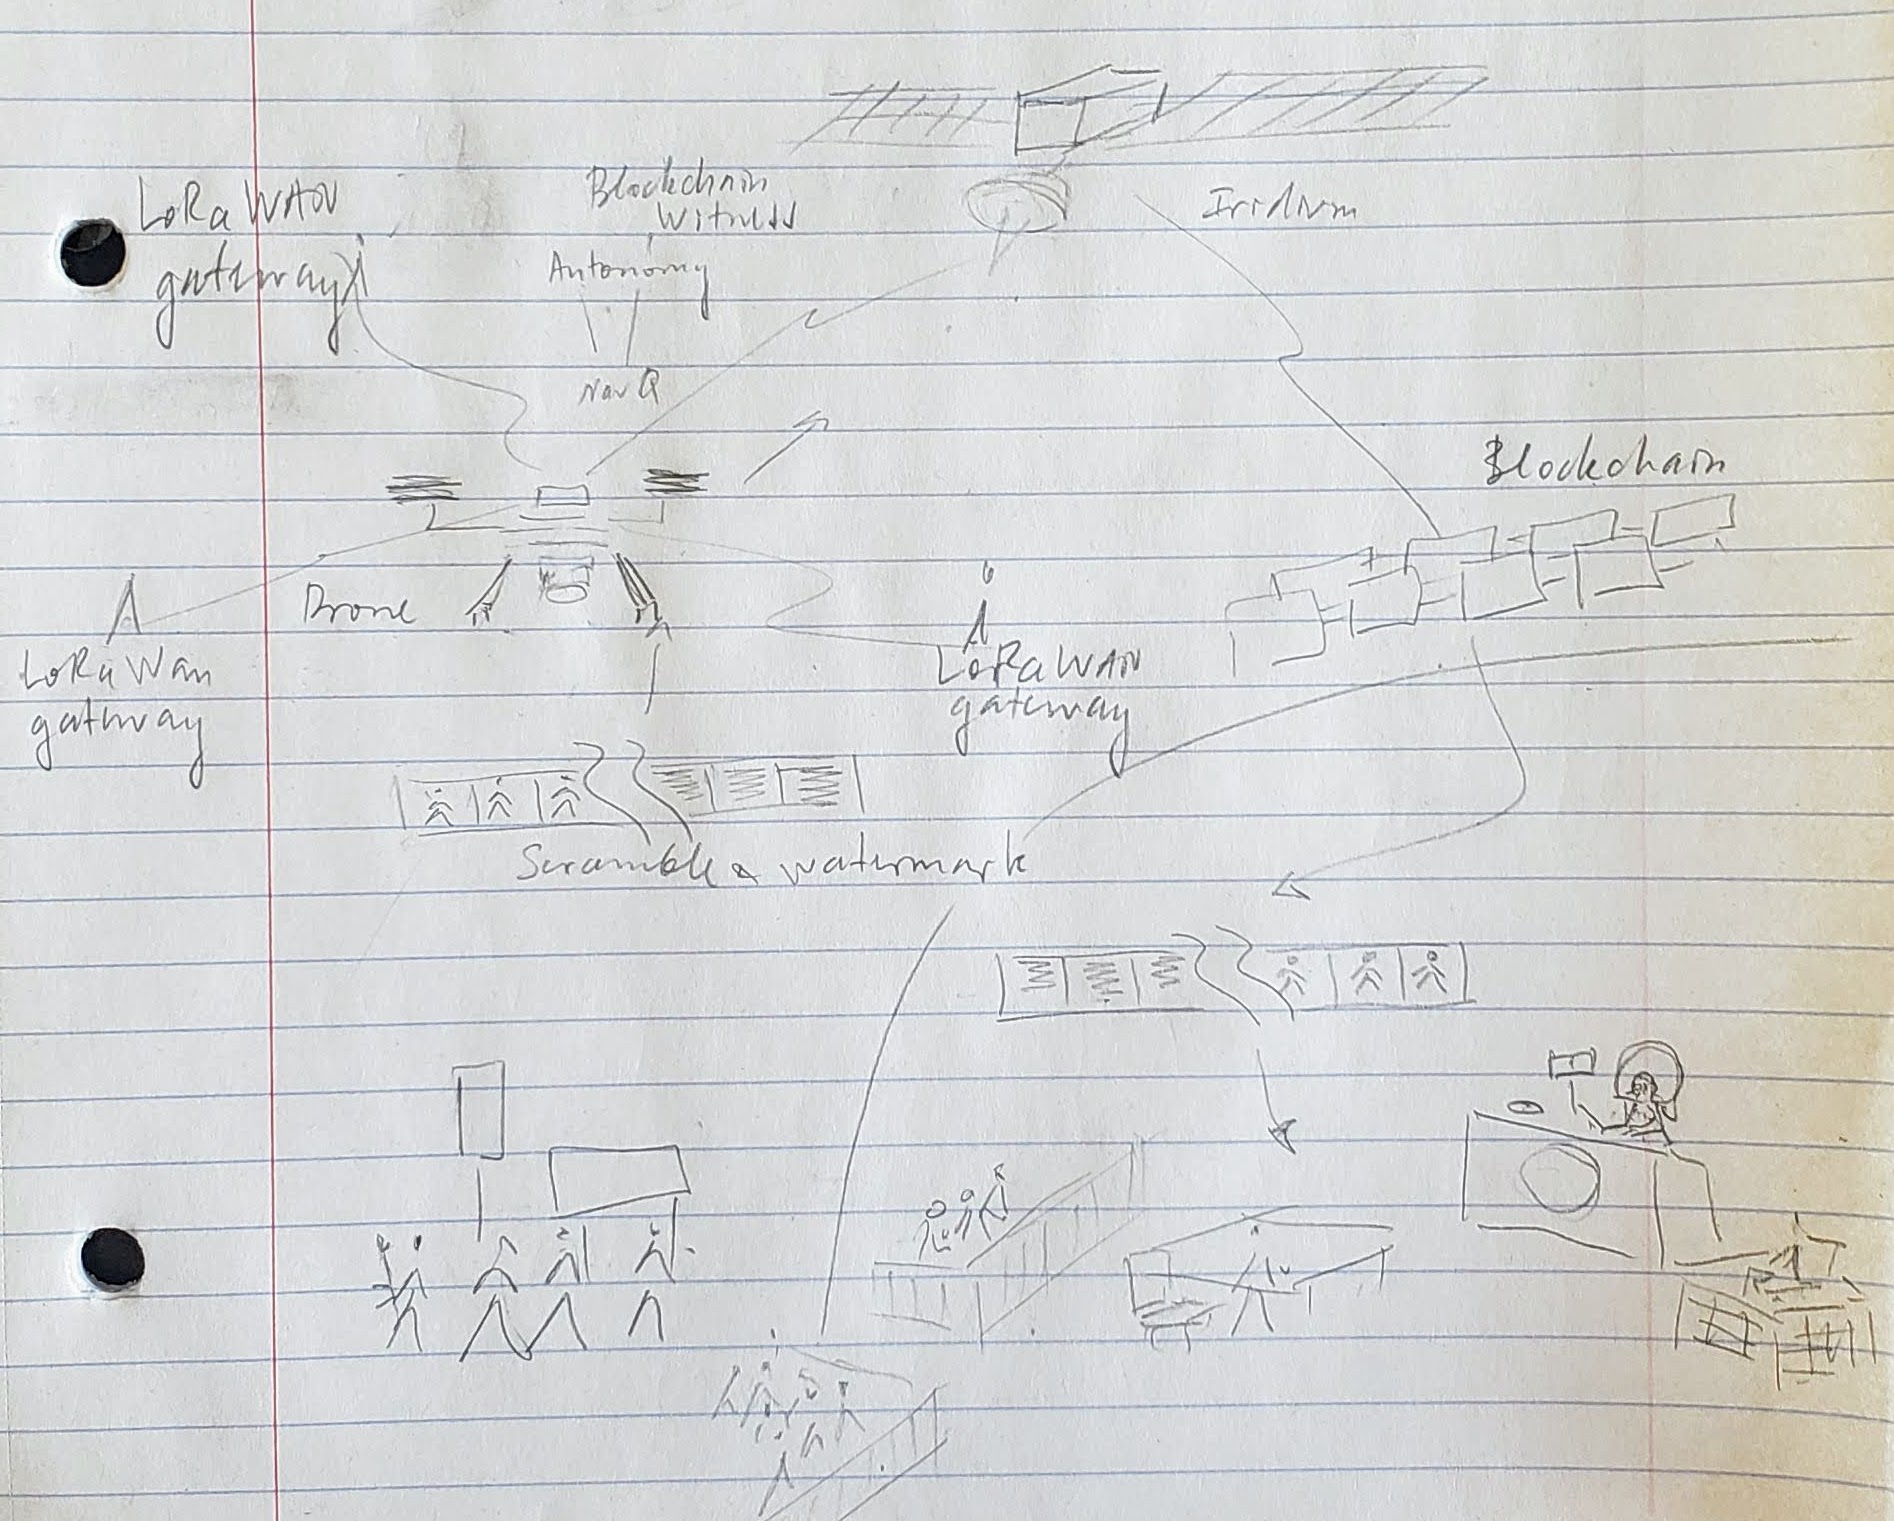 LoRa WAN
gateway
Blockchain
Witness
Autonomy
NavQ
Iridium
Blockchain
Drone
LoRa Wan
gateway
LoRa WAN
gateway
Scramble & watermark